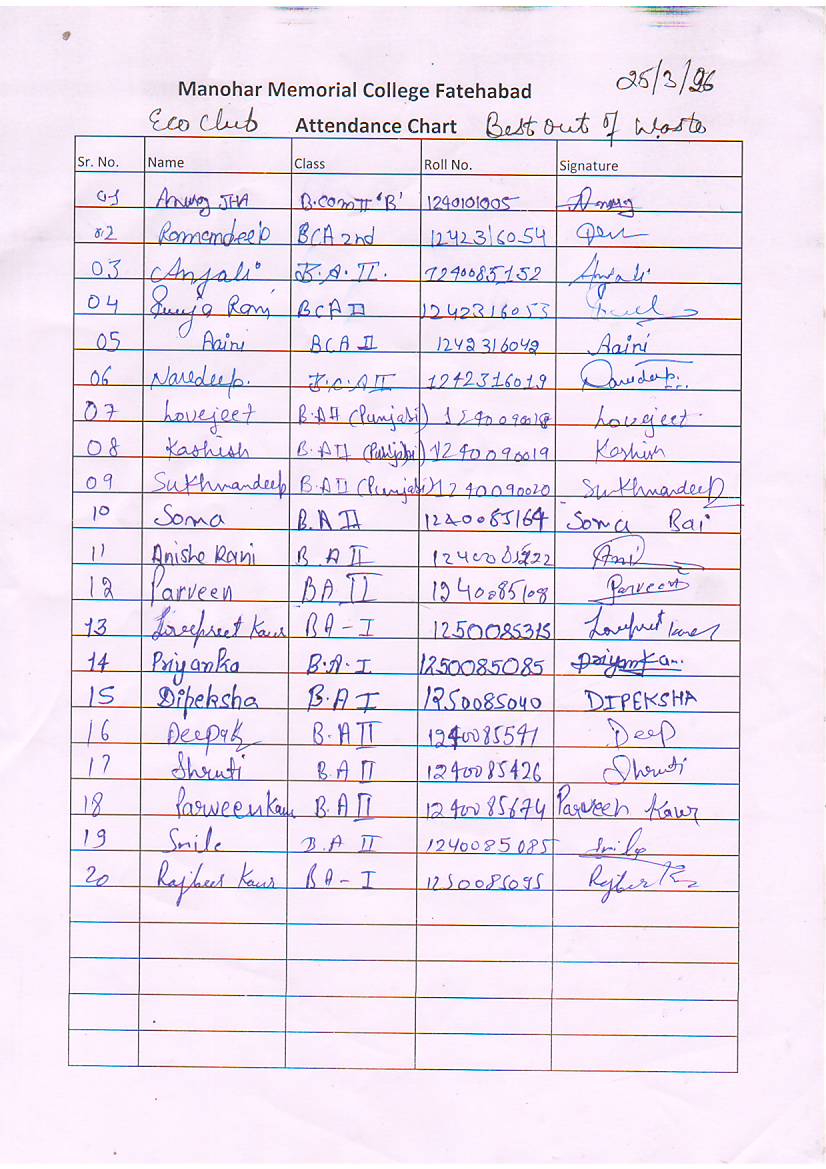 25/3/26
Manohar Memorial College Fatehabad
Eco Club Attendance Chart Best out of Waste
Sr. No. Name Class Roll No. Signature
01 Anurag JHA B.com II 'B' 1240101005 Anurag
02 Ramandeep BCA 2nd 1242316054
03 Anjali B.A. II. 1240085152 Anjali
04 Rani BCA II 1242316053
05 Aaini BCA II 1242316042 Aaini
06 Navdeep. B.C.A II 1242316019 Navdeep.
07 Lovejeet B.A II (Punjabi) 1240090018 Lovejeet
08 Kashish B.A II (Punjabi) 1240090019 Kashish
09 Sukhmandeep B.A II (Punjabi) 1240090020 Sukhmandeep
10 Soma B.A II 1240085164 Soma Bai
11 Anishe Rani B A II Ani
12 Parveen BA II 1240085108 Parveen
13 Lovepreet Kaur BA - I 1250085315 Lovepreet Kaur
14 Priyanka B.A. I 1250085085 Priyanka..
15 Dipeksha B.A I 1250085040 DIPEKSHA
16 Deepak B.A II 1240085541 Deep
17 Shruti B A II 1240085426 Shruti
18 Parween Kaur B.A II 1240085674 Parveen Kaur
19 Smile B.A II 1240085085 Smile
20 Rajbeer Kaur BA - I 1250085095 Rajbeer K